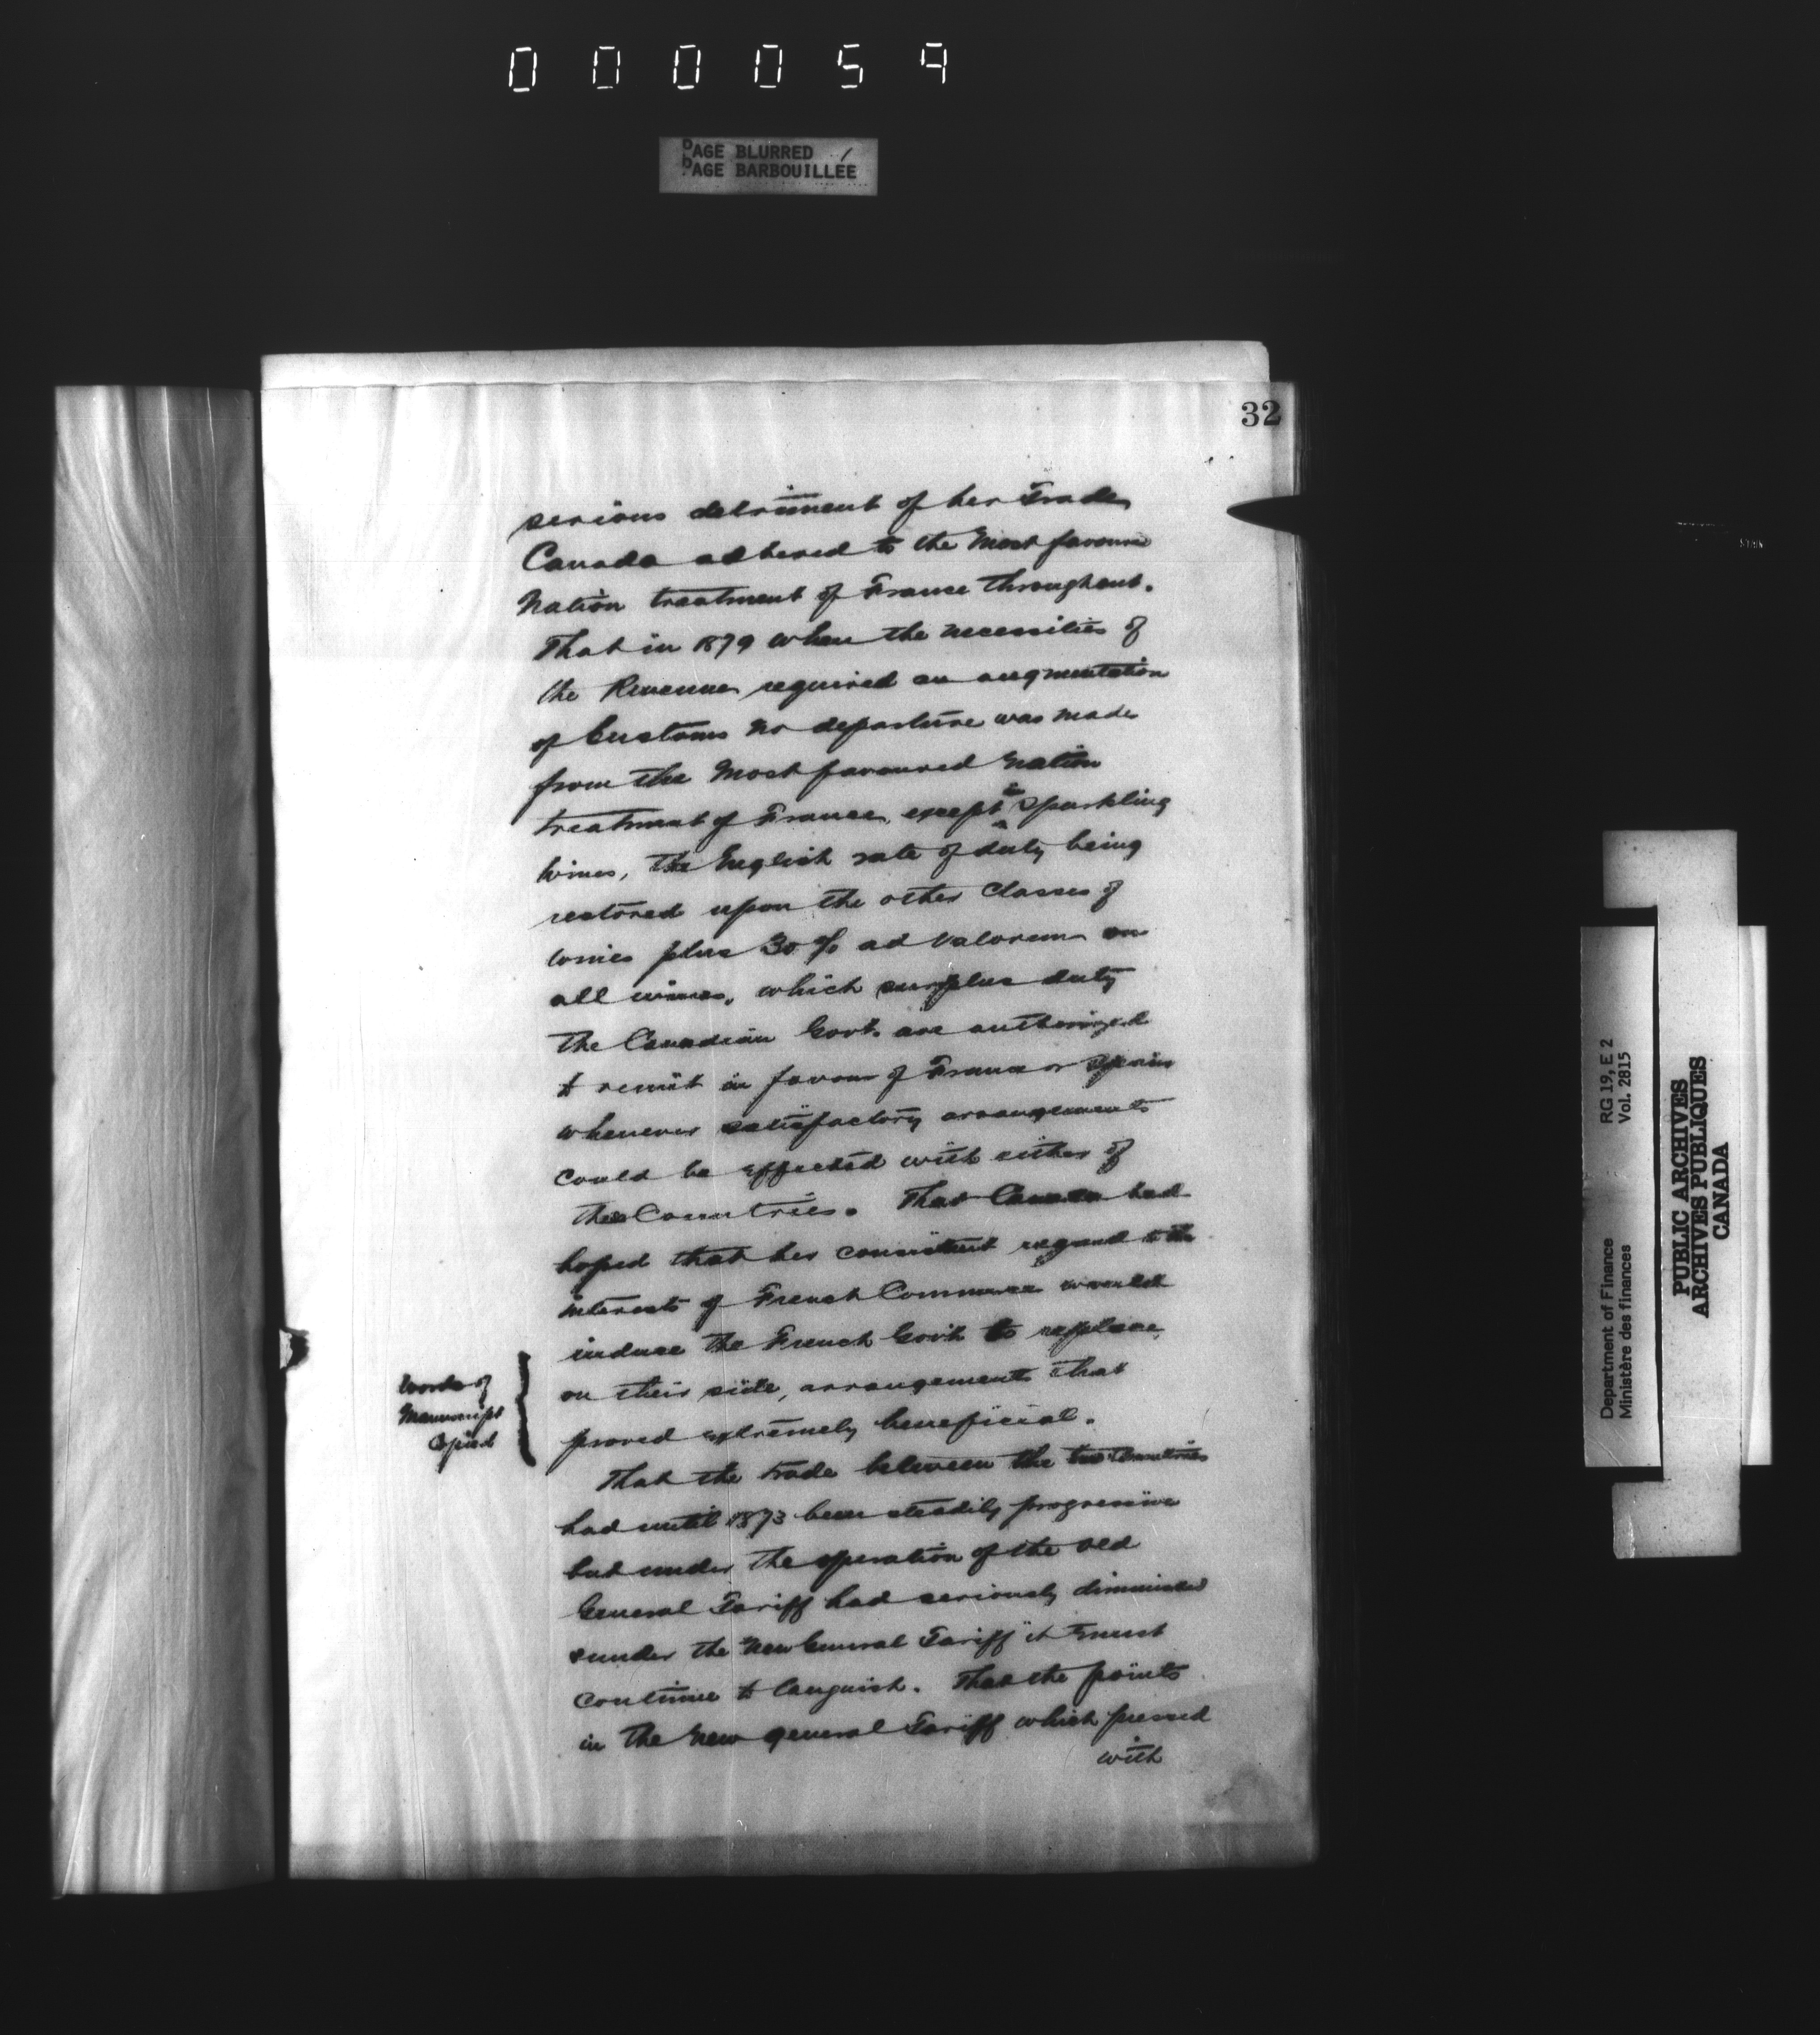 000059
PAGE BLURRED
PAGE BARBOUILLÉE
32
serious detriment of her Trade
Canada adhered to the Most favoured
Nation treatment of France throughout.
That in 1879 when the necessities of
the Revenue required an augmentation
of Customs no departure was made
from the Most favoured Nation
treatment of France, except in Sparkling
Wines, the English rate of duty being
restored upon the other Classes of
wines plus 30% ad valorem on
all wines, which surplus duty
the Canadian Govt. are authorized
to remit in favour of France or Spain
whenever satisfactory arrangements
could be effected with either of
the Countries. That Canada had
hoped that her consistent regard to the
interests of French Commerce would
induce the French Govt to replace,
on their side, arrangements that
proved extremely beneficial.
Words of
Manuscript
Copied
That the trade between the two Countries
had until 1873 been steadily progressive
but under the operation of the old
General Tariff had seriously diminished
& under the New General Tariff it must
continue to languish. That the points
in the New general Tariff which pressed
with
Department of Finance RG 19, E 2
Ministère des finances Vol. 2815
PUBLIC ARCHIVES
ARCHIVES PUBLIQUES
CANADA